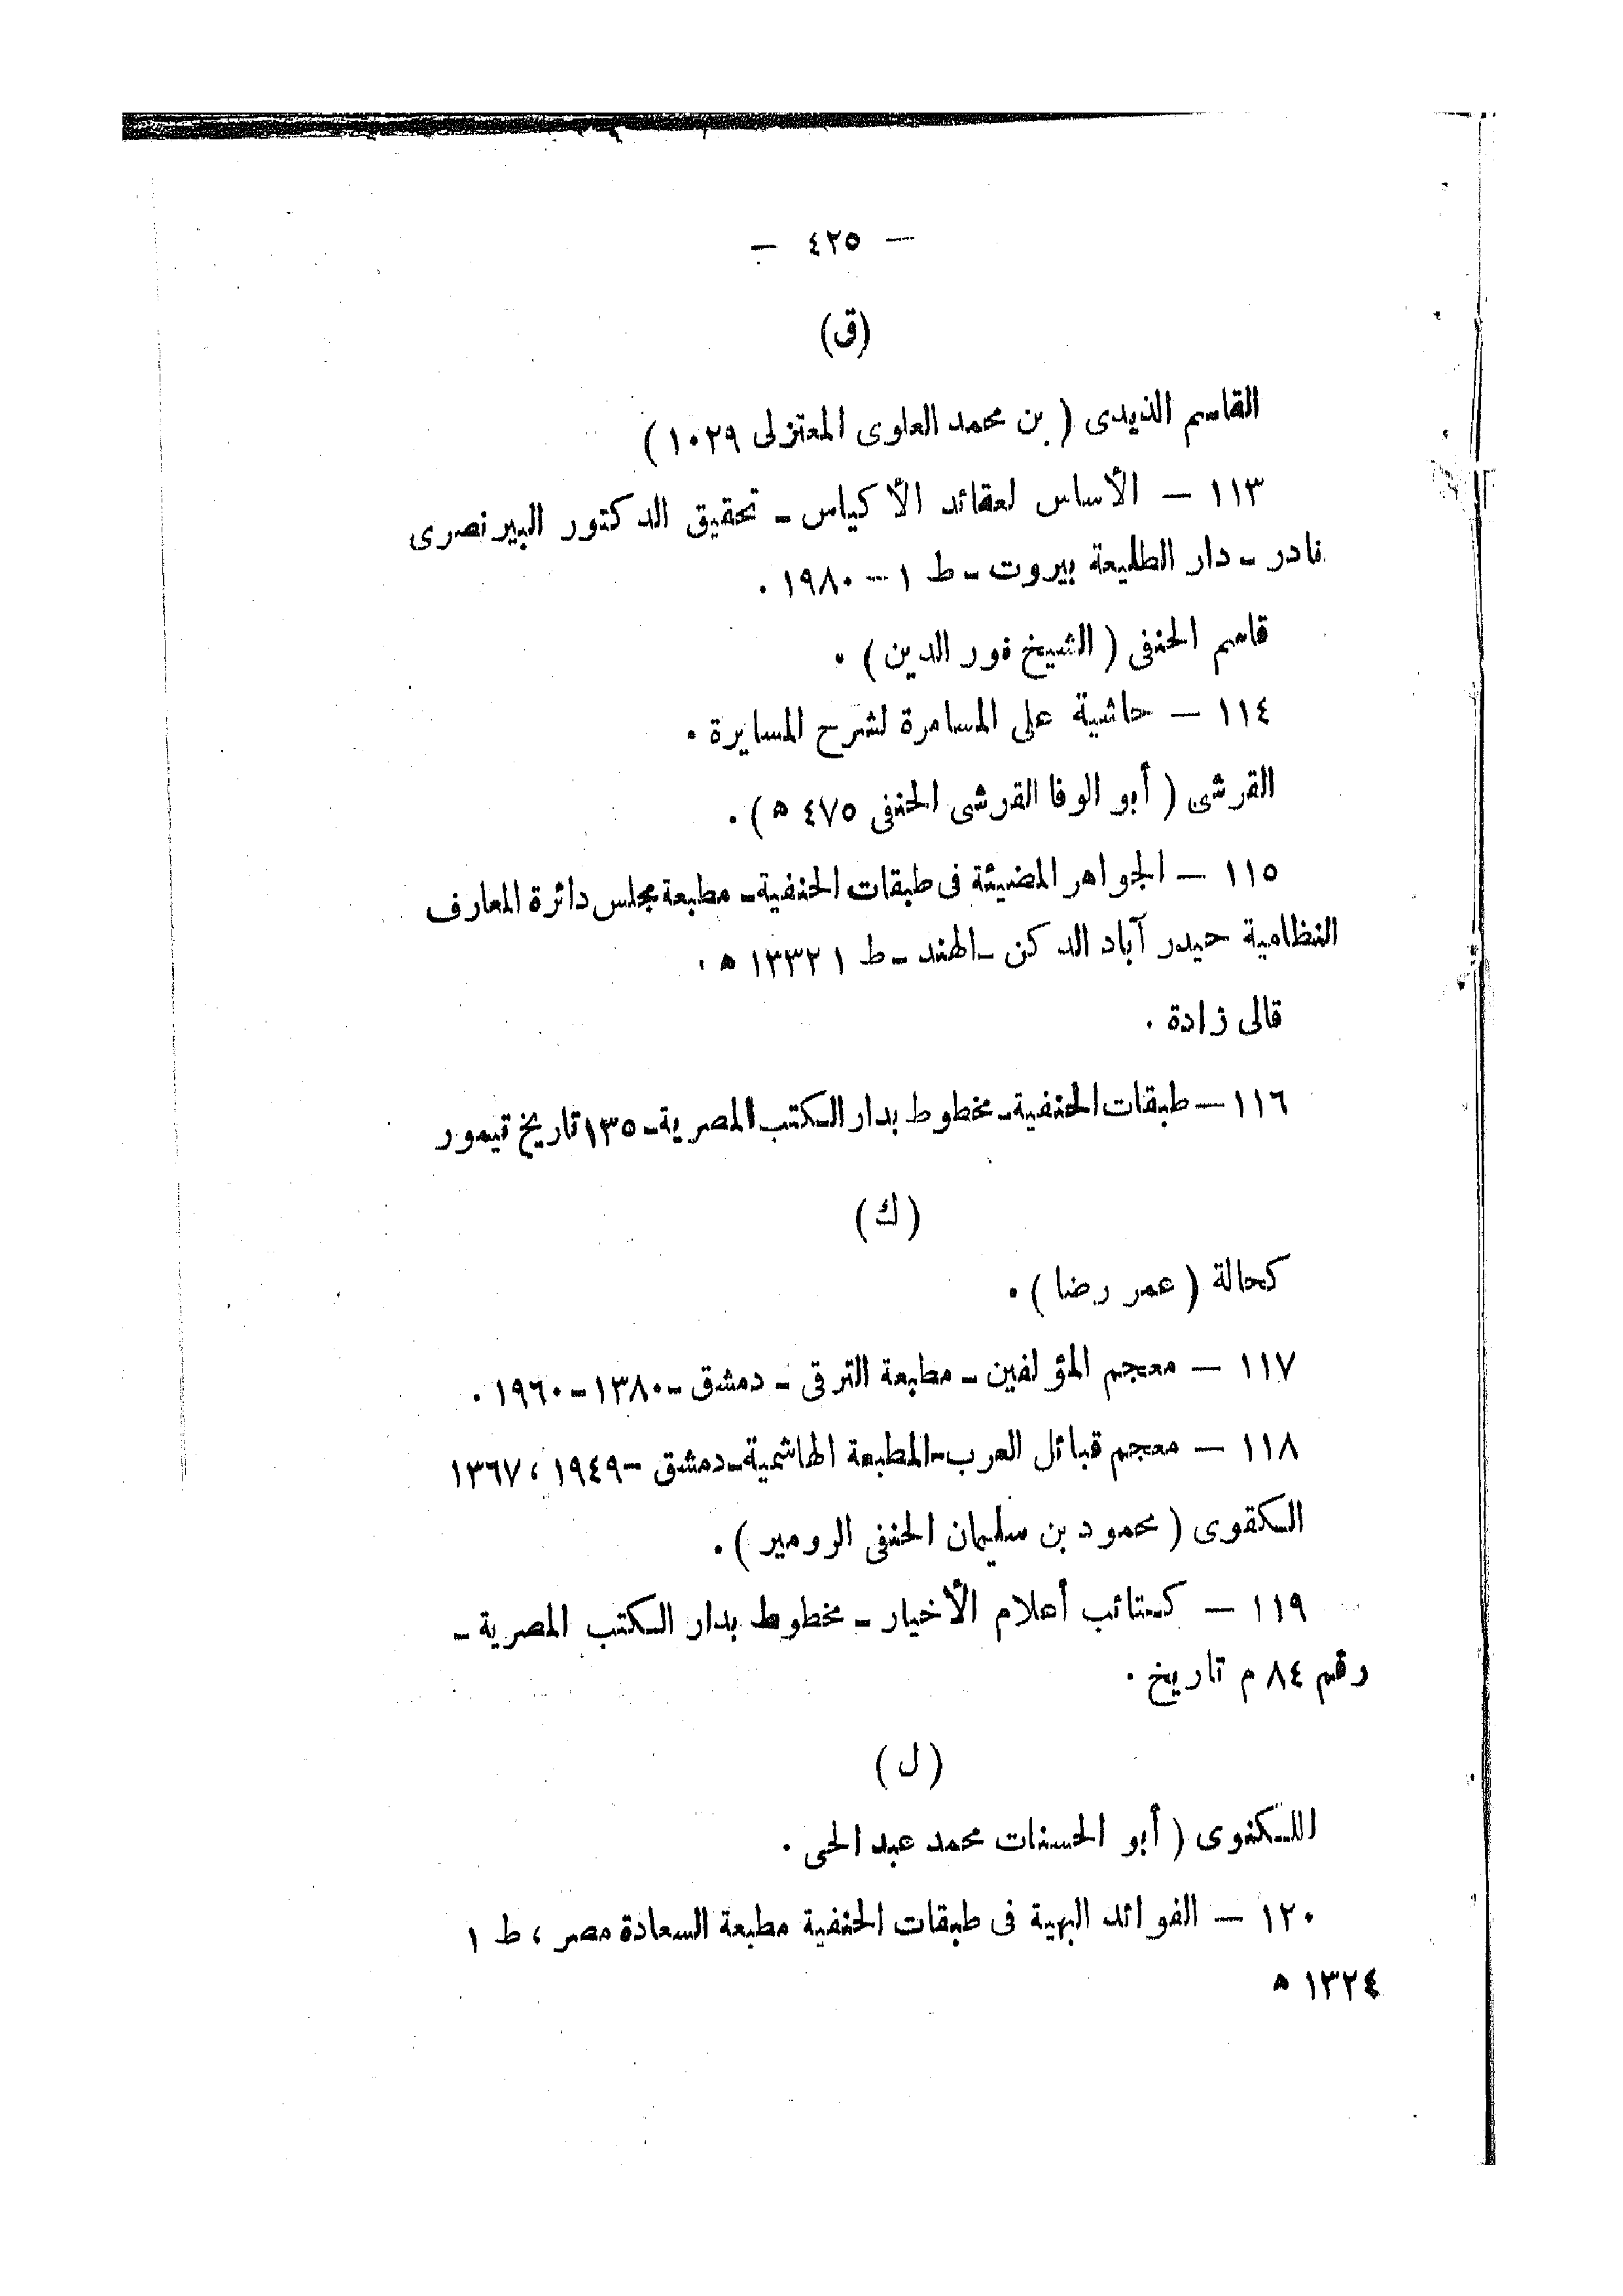 — ٤٢٥ —
(ق)
القاسم الذيدى ( بن محمد العلوى المعتزلى ١٠٢٩ )
١١٣ — الأساس لعقائد الأكياس - تحقيق الدكتور البير نصرى
نادر - دار الطليعة بيروت - ط ١ - ١٩٨٠ .
قاسم الحنفى ( الشيخ نور الدين ) .
١١٤ — حاشية على المسامرة لشرح المسايرة .
القرشى ( أبو الوفا القرشى الحنفى ٤٧٥ ه ) .
١١٥ — الجواهر المضيئة فى طبقات الحنفية - مطبعة مجلس دائرة المعارف
النظامية حيدر آباد الدكن - الهند - ط ١٣٣٢١ ه .
قالى زادة .
١١٦ — طبقات الحنفية - مخطوط بدار الكتب المصرية - ١٣٥ تاريخ تيمور
( ك )
كحالة ( عمر رضا ) .
١١٧ — معجم المؤلفين - مطبعة الترقى - دمشق - ١٣٨٠ - ١٩٦٠ .
١١٨ — معجم قبائل العرب - المطبعة الهاشمية - دمشق - ١٩٤٩ ، ١٣٦٧
الكفوى ( محمود بن سليمان الحنفى الرومير ) .
١١٩ — كتائب أعلام الأخيار - مخطوط بدار الكتب المصرية -
رقم ٨٤ م تاريخ .
( ل )
اللكنوى ( أبو الحسنات محمد عبد الحى .
١٢٠ — الفوائد البهية فى طبقات الحنفية مطبعة السعادة مصر ، ط ١
١٣٢٤ ه